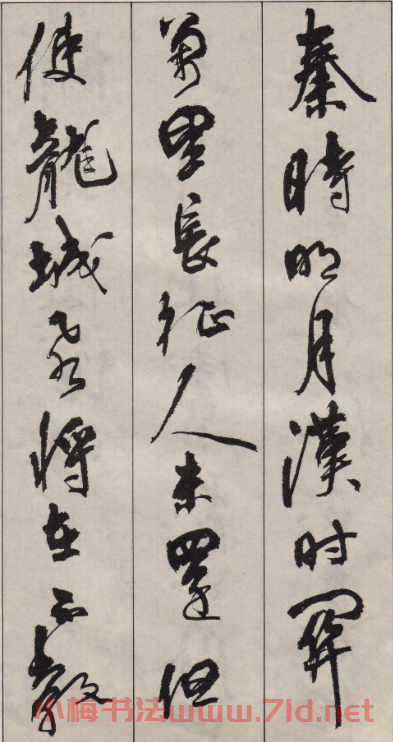 秦時明月漢时関
萬里長征人未罷但
使龍城飛将在不教
小梅书法www.7ld.net